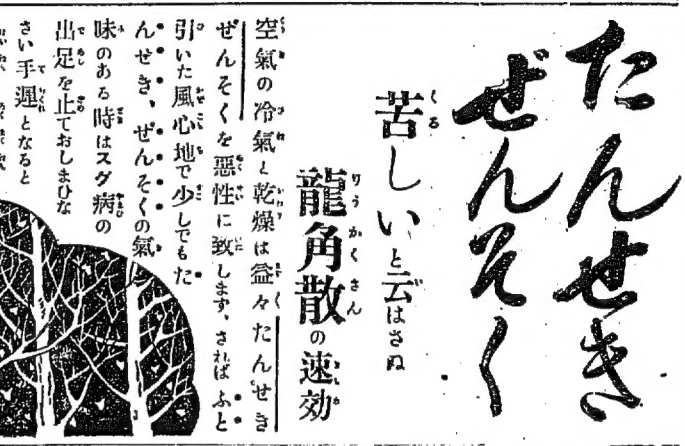 たんせき
ぜんそく
苦しいと云はさぬ
龍角散の速効
空氣の冷氣と乾燥は益々たんせき
ぜんそくを惡性に致します、されば ふと
引いた風心地で少しでもた
んせき、ぜんそくの氣
味のある時はスグ病の
出足を止ておしまひな
さい手遲となると